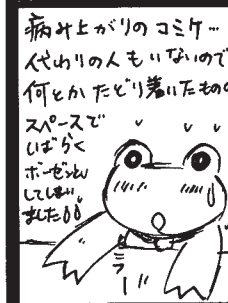 病み上がりのコミケ…
代わりの人もいないので
何とかたどり着いたものの
スペースで
しばらく
ボーゼンと
してしまい
ました
ミラー